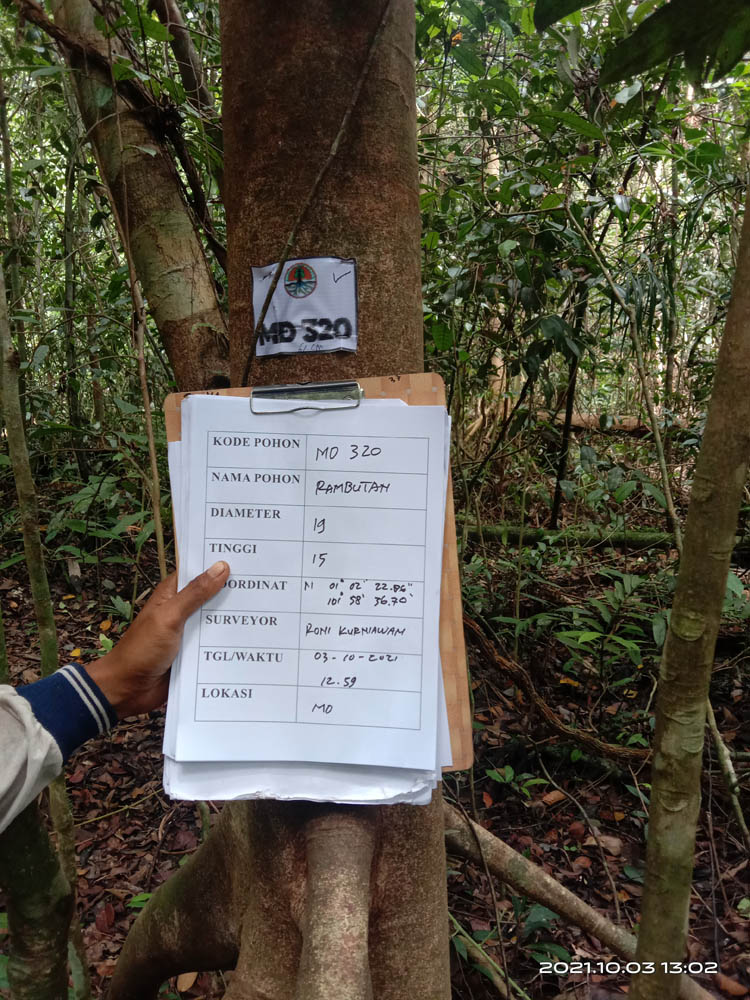 MD 320
KODE POHON MD 320
NAMA POHON RAMBUTAN
DIAMETER 19
TINGGI 15
OORDINAT N 01° 02' 22.86"
101° 58' 56.70"
SURVEYOR RONI KURNIAWAN
TGL/WAKTU 03-10-2021
12.59
LOKASI MD
2021.10.03 13:02